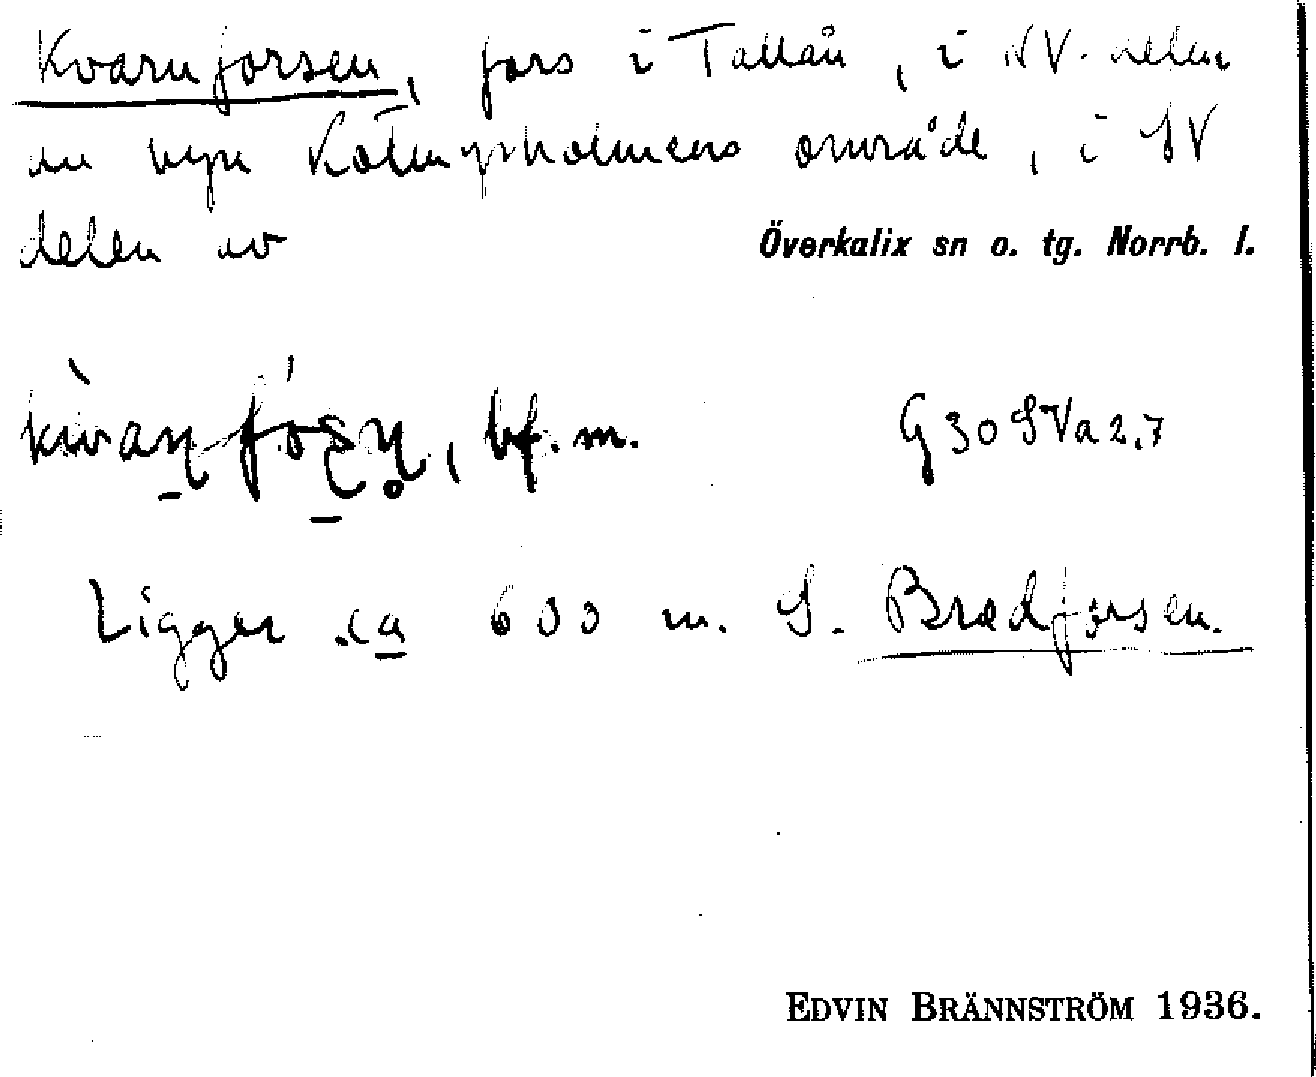 Kvarnforsen, fors i Tallån, i NV. delen
av byn områ̊de, i SV
delen av Överkalix sn o. tg. Norrb. l.
bf. m. G 30 SVa 2,7
Ligger ca 600 m. S. Bredforsen.
EDVIN BRÄNNSTRÖM 1936.